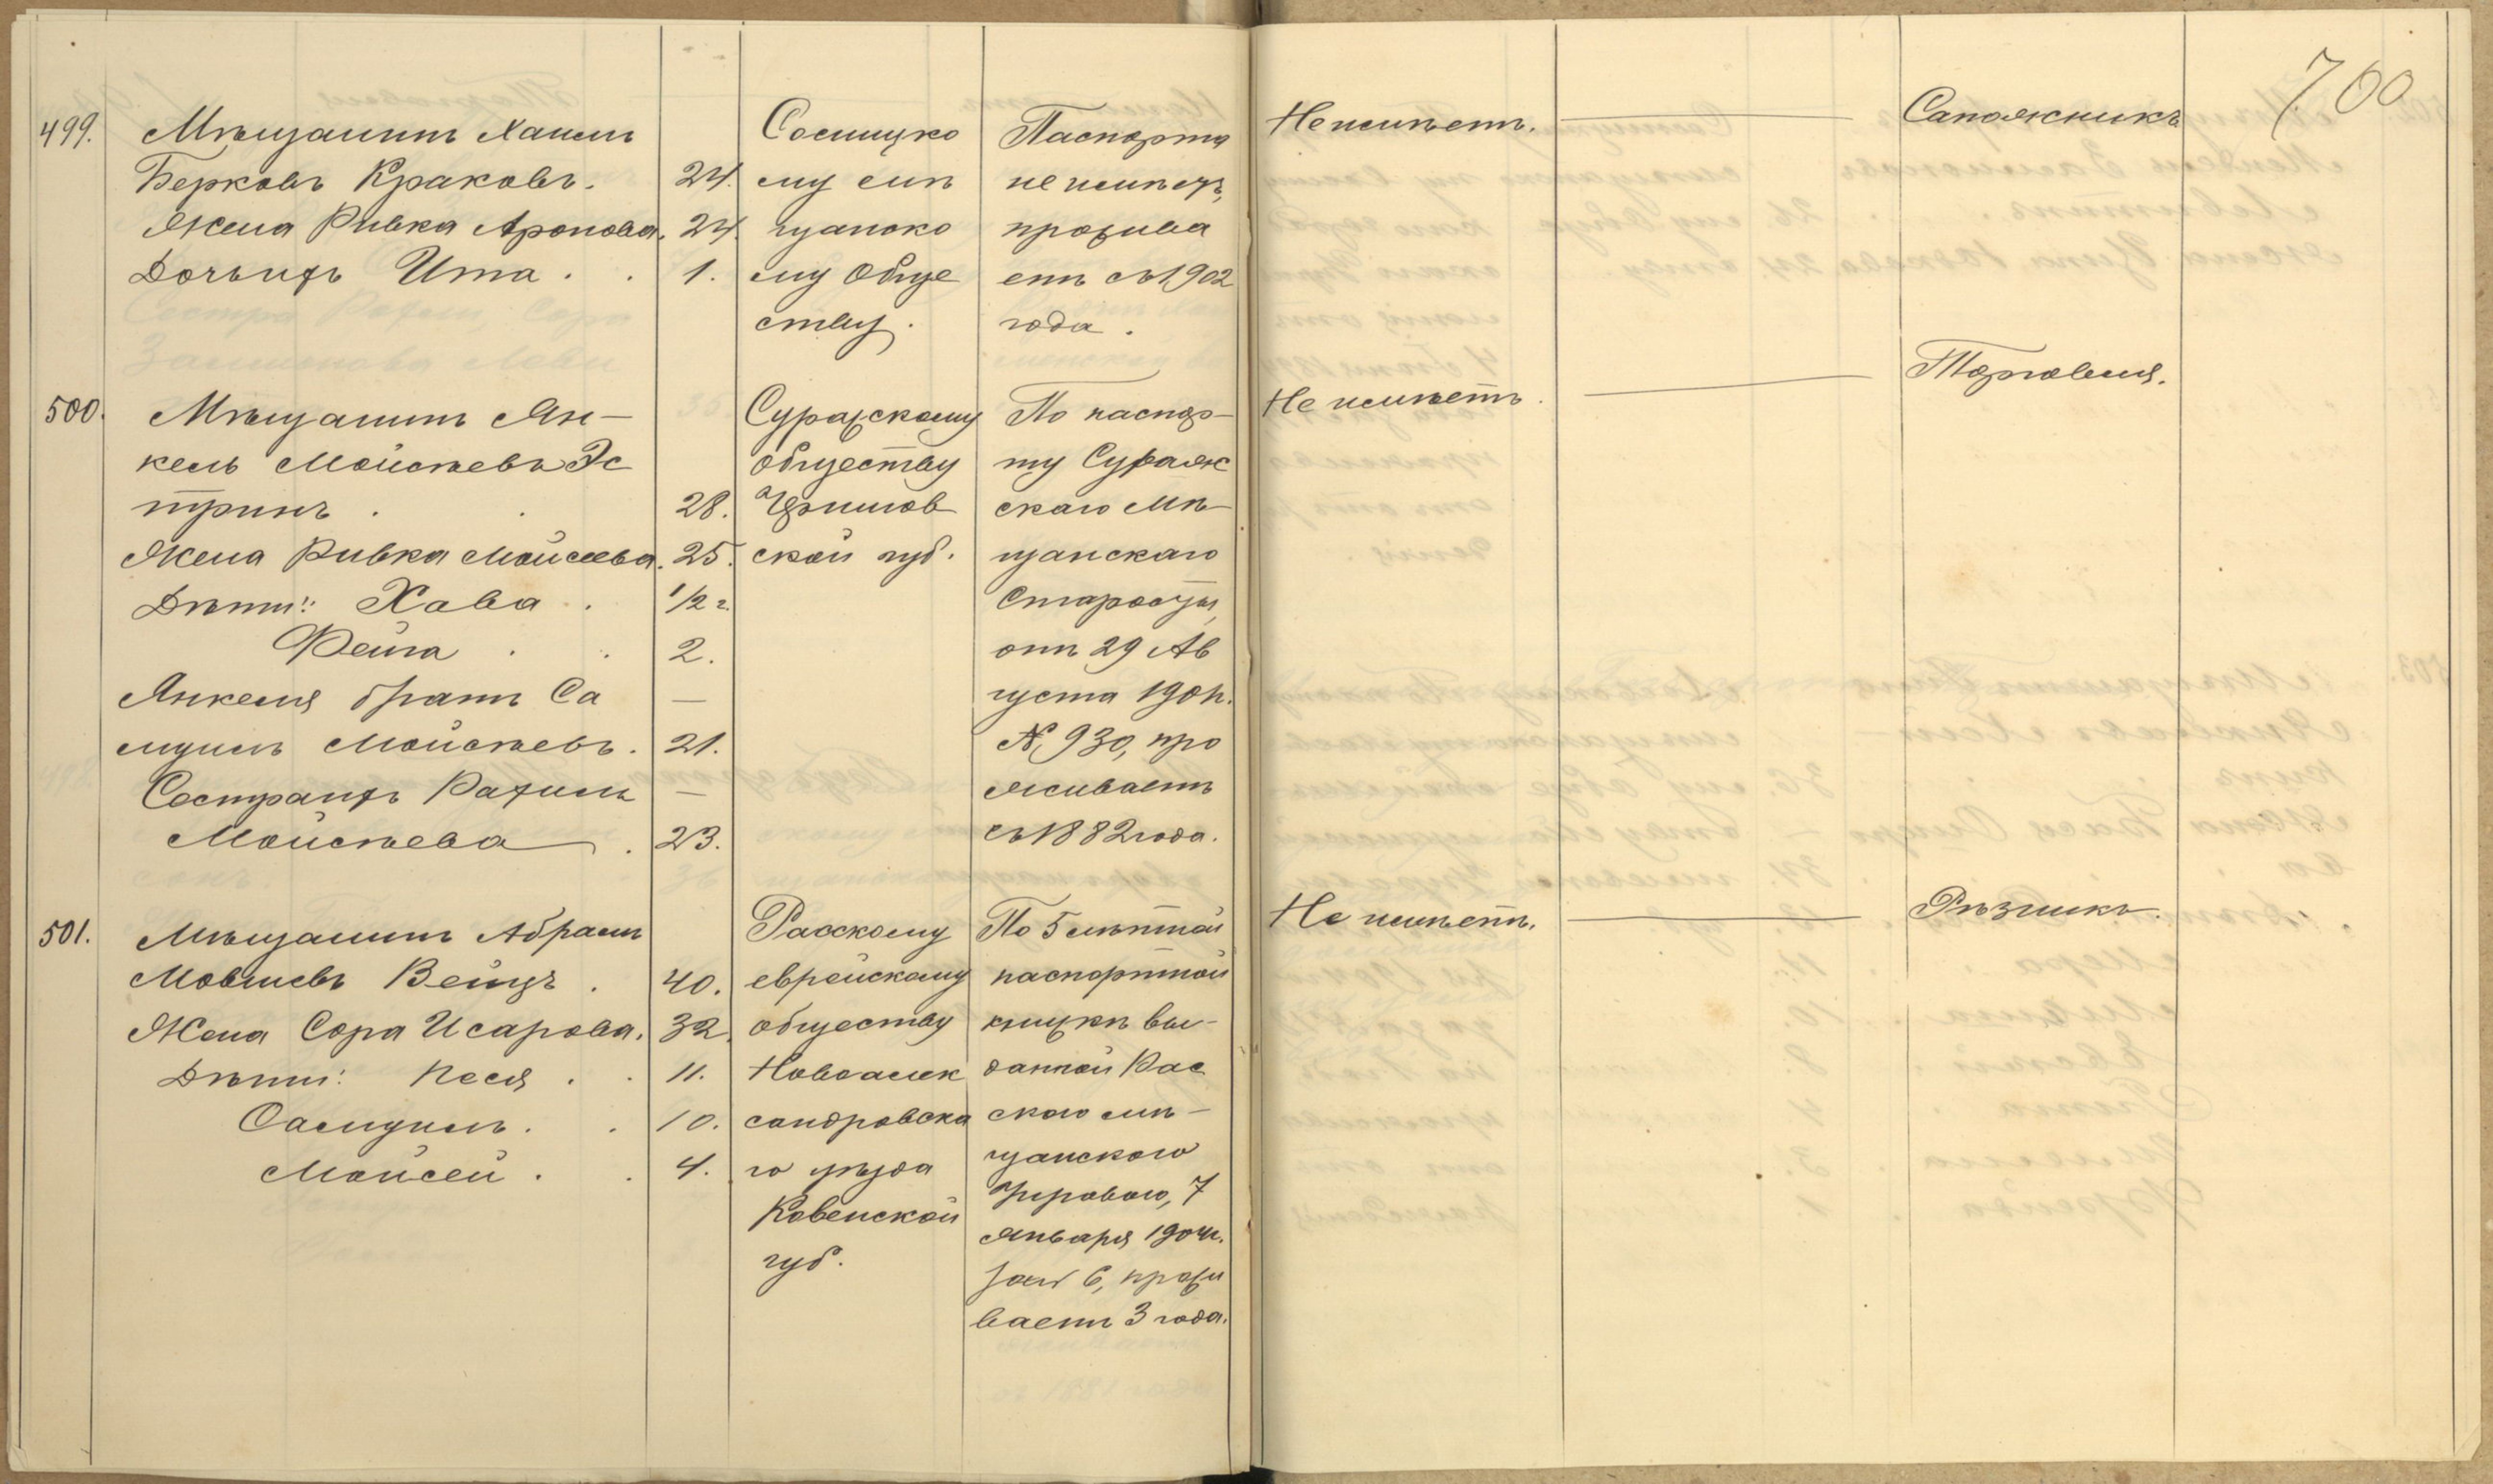 700
499.
Мѣщанинъ Хаимъ
Берковъ Краковъ. 24.
Жена Ривка Аронова. 24.
Дочь ихъ Ита . . 1.
Сосницко
му мѣ
щанско
му Обще
ству.
Паспорта
не имѣетъ,
прожива
етъ съ 1902
года.
Не имѣетъ.
Сапожникъ
500.
Мѣщанинъ Ян-
кель Мойсѣевъ Эс
тринъ . . 28.
Жена Ривка Мойсеева. 25.
Дѣти: Хава . 1/2 г.
Фейга . . 2.
Янкеля братъ Са —
муилъ Мойсѣевъ. 21.
Сестра ихъ Рахиль —
Мойсѣева . 23.
Суражскому
обществу
Чернигов
ской губ.
По паспор-
ту Сураж
скаго Мѣ-
щанскаго
Старосты,
отъ 29 Ав
густа 190
№ 930, про
живаетъ
съ 1882 года.
Не имѣетъ.
Торговля.
501.
Мѣщанинъ Абрамъ
Мовшевъ Вейцъ . 40.
Жена Сора Исарова. 32.
Дѣти: Песя . . 11.
Самуилъ. . 10.
Мойсей . . 4.
Расскому
еврейскому
обществу
Новоалек
сандровска
го уѣзда
Ковенской
губ.
По 5 лѣтной
паспортной
книжкѣ вы-
данной Рас
скаго мѣ-
щанского
7
Января 1904г.
за № 6, прожи
ваетъ 3 года.
Не имѣетъ.
Рѣзникъ.